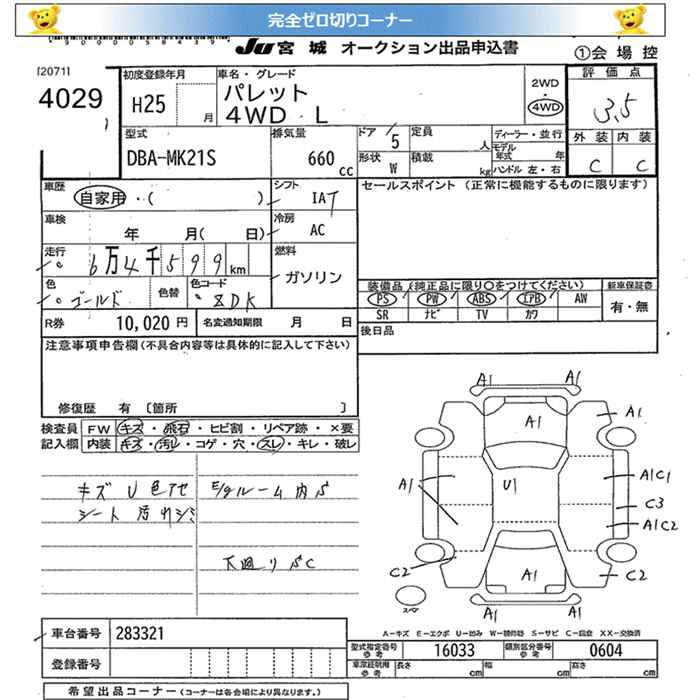 完全ゼロ切りコーナー
JU 宮城 オークション出品申込書
①会場控
[2071]
4029
初度登録年月
H25
月
車名・グレード
パレット
4WD L
2WD
・
4WD
評価点
3.5
型式
DBA-MK21S
排気量
660
cc
ドア
5
定員
人
形状
W
積載
kg
ディーラー・並行
モデル
年式 年
ハンドル 左・右
外装 内装
C C
車歴
自家用・( )
シフト
IAT
セールスポイント (正常に機能するものに限ります)
車検
年 月( 日)
冷房
AC
走行
6万4千599km
燃料
ガソリン
色
ゴールド
色替
色コード
ZDK
装備品 (純正品に限り○をつけてください)
新車保証書
PS PW ABS エアB AW
SR ナビ TV カワ
有・無
R券
10,020円
名変通知期限 月 日
後日品
注意事項申告欄(不具合内容等は具体的に記入して下さい)
修復歴 有 〔箇所 〕
検査員 FW キズ・飛石・ヒビ割・リペア跡・×要
記入欄 内装 キズ・汚レ・コゲ・穴・スレ・キレ・破レ
キズ U 色アセ
シート 汚れシミ
E/gルーム内 S
下廻り SC
A1 A1
A1 A1
A1 U1 A1C1
C3
A1C2
C2 A1 C2
A1 A1
スペア
A−キズ E−エクボ U−凹み W−補修跡 S−サビ C−腐食 XX−交換済
車台番号 283321
登録番号
型式指定番号
参考
16033
類別区分番号
参考
0604
車庫証明用
参考
長さ cm
幅 cm
高さ cm
希望出品コーナー (コーナーは各会場により異なります。)